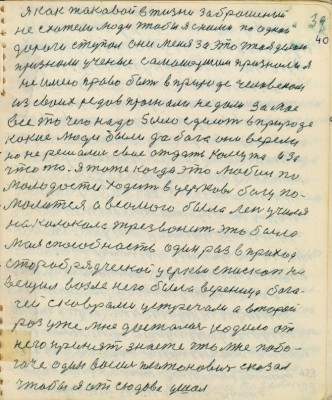 39
40
я как таковой в жизни заброшеный
не хотели люди чтобы я с ними по одной
дороги ступал они меня за это
признали ученые самоучкою признали я
не имею право быть в природе человеком
из своих рядов прогнали не дали за мое
все то чего надо было сделать в природе
какие люди были да бога они верели
но не решались свое отдать кому то и за
что то. Я тоже когда это любил по
молодости ходить в церковь богу по-
молится а весомого было лет учился
на колокола трезвонить это было
моя способность один раз в приход
старобрядческой церкви епископ на
вещил возле него была вереница бога-
чей с коврами устречали а второй
раз уже мне досталась кадило от
него принять знаете то мне побо-
гаче один васил платонович сказал
чтобы я от сюдова ушол